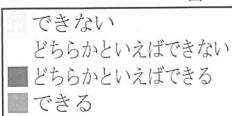 できない
どちらかといえばできない
どちらかといえばできる
できる